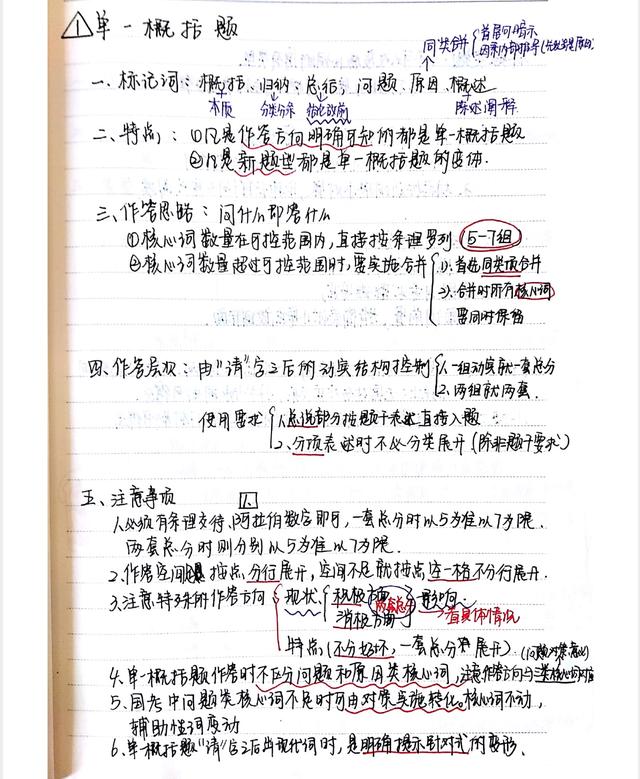 ①单一概括题
同类合并
首层可暗示
一、标记词:概括、归纳、总结、问题、原因、概述
本质 分类分条 结论改前 陈述阐释
二、特点:①凡是作答方向明确可知的都是单一概括题
②凡是新题型都是单一概括题的变体.
三、作答思路:问什么即答什么
①核心词数量在可控范围内,直接按条理罗列 5-7组
②核心词数量超过可控范围时,要实施合并
1). 首先同类项合并
2). 合并时所有核心词
要同时保留
四、作答层次:由“请”字之后的动宾结构控制
1. 一组动宾就一套总分
2. 两组就两套.
使用要求
1. 总说部分按题干表述直接入题
2. 分项表述时不必分类展开(除非题干要求)
五、注意事项
1. 必须有条理支持、阿拉伯数字即可,一套总分时以5为准以7为限.
两套总分时则分别以5为准以7为限.
2. 作答空间足按点分行展开,空间不足就按点空一格不分行展开.
3. 注意特殊的作答方向
现状
积极方面
消极方面
两套总分
影响
看具体情况
特点(不分好坏,一套总分展开)
4. 单一概括题作答时不区分问题和原因类核心词,注意作答方向与三类核心词对应
5. 国考中问题类核心词不足时可由对策实施转化。核心词不动,
辅助性词变动
6. 单一概括题“请”字之后出现代词时,是明确提示针对式的变形.